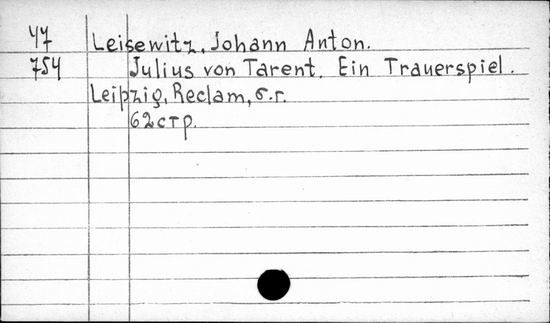 47 Leisewitz, Johann Anton.
754 Julius von Tarent. Ein Trauerspiel.
Leipzig, Reclam, б.г.
62 стр.